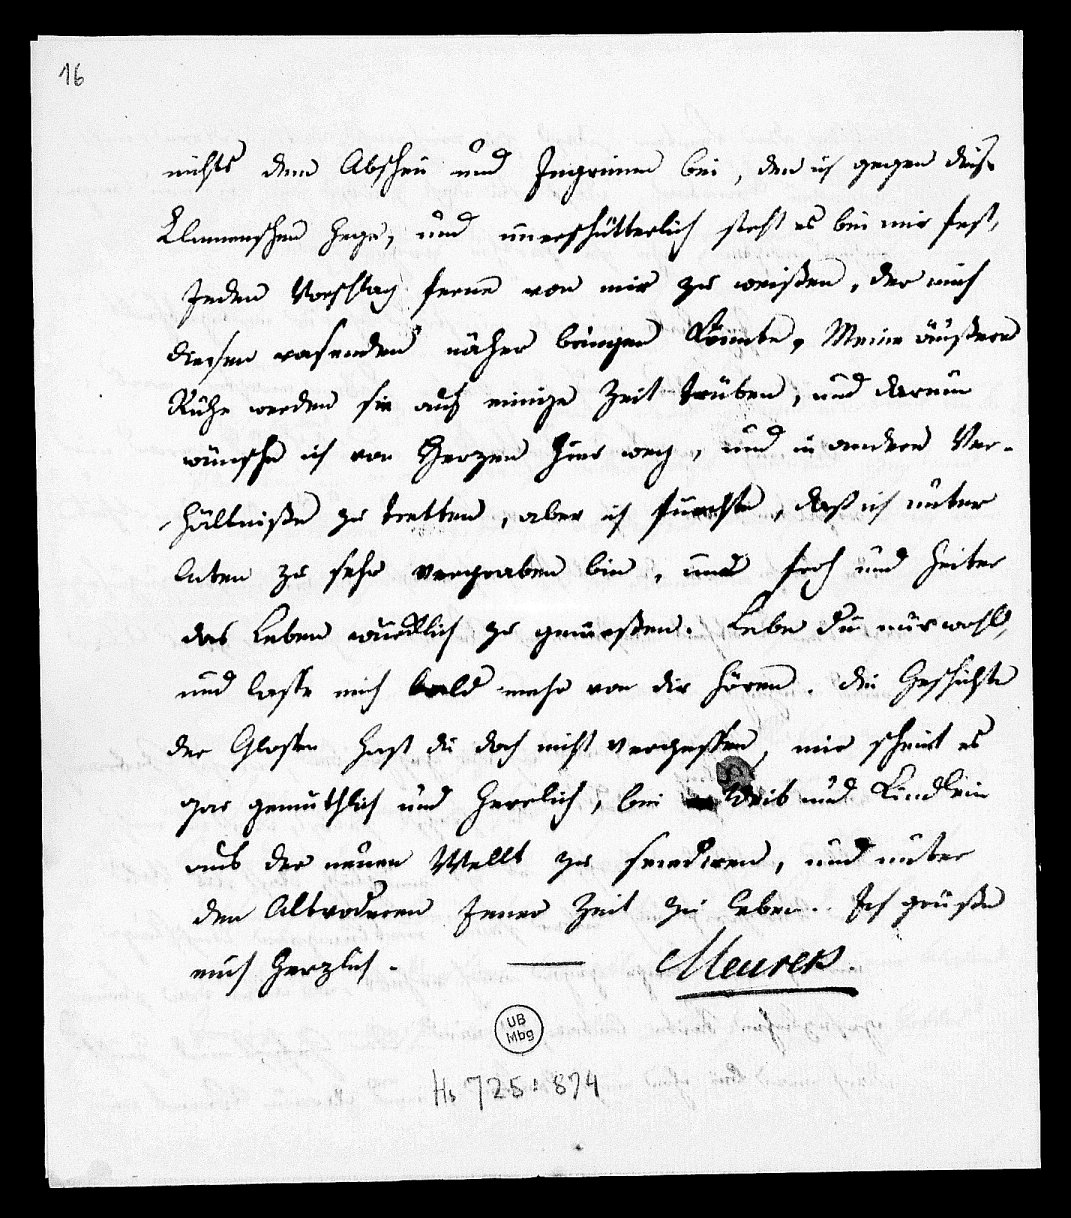 16
nichts dem Abscheu und Ingrimm bei, den ich gegen diese
hege, und unerschütterlich steht es bei mir fest,
Jeden Vorschlag ferne von mir zu weißen, der mich
diesen rasenden näher bringen könnte. Meine äußere
Ruhe werden sie auf einige Zeit trüben, und darum
wünsche ich von Herzen hier weg, und in andere Ver-
hältniße zu tretten, aber ich fürchte, daß ich unter
Acten zu sehr vergraben bin, und froh und heiter
das Leben zu genießen. Lebe du nur wohl,
und lasse mich bald mehr von dir hören. die Geschichte
der Glossen hast du doch nicht vergessen, mir scheint es
gar gemüthlich und herrlich, bei Weib und Kindlein
aus der neuen Wellt zu, und unter
den Altvoderen Jener Zeit zu leben. Ich grüße
euch herzlich. — Meurer.
UB
Mbg
Hs 725: 874